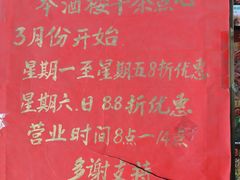 本酒楼早茶点心
3月份开始
星期一至星期五8折优惠
星期六.日 8.8折优惠
营业时间8点一14点
多谢支持